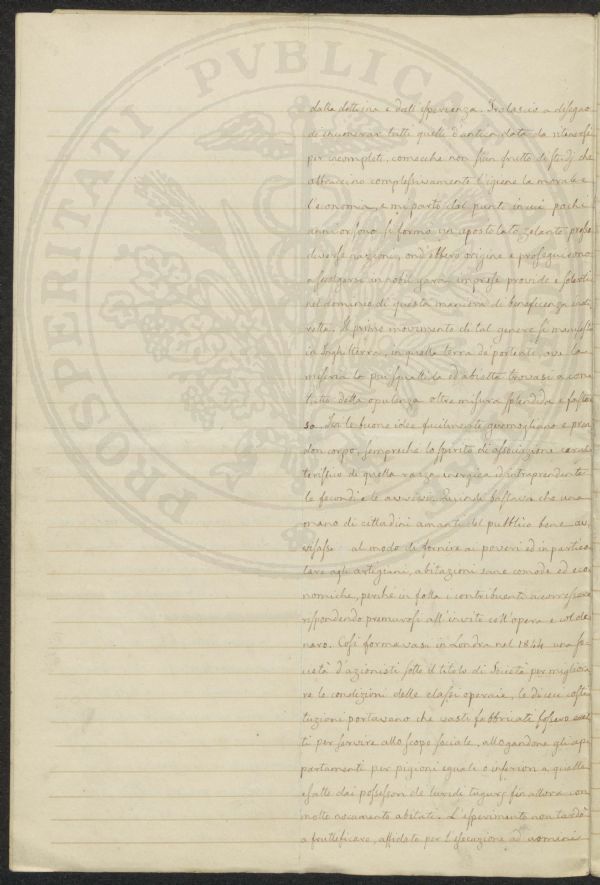 PROSPERITATI PVBLICAE
dalla dottrina e dall'esperienza. Tralascio a disegno
di enumerar tutte quelle d'antica data da ritenersi
per incomplete, comecchè non sian frutto di studj che
abbraccino complessivamente l'igiene la morale e
l'economia, e mi parto dal punto in cui pochi
anni or sono si formò un apostolato zelante presso
diverse nazioni, ond'ebbero origine e proseguirono
a svolgersi in nobil gara imprese provide e solerti
nel dominio di questa maniera di beneficenza indi
retta. Il primo movimento di tal genere si manifestò
in Inghilterra, in quella terra di portenti, ove la
miseria la più squallida ed abietta trovasi a con
tatto della opulenza oltre misura splendida e fasto
sa. Ivi le buone idee facilmente germogliano e pren
don corpo, sempreché lo spirito di associazione carat
teristico di quella razza energica ed intraprendente
le fecondi e le avvivi. Quindi bastava che una
mano di cittadini amanti del pubblico bene av
visasse al modo di fornire ai poveri ed in partico
lare agli artigiani, abitazioni sane comode ed eco
nomiche, perché in folla i contribuenti accorressero
rispondendo premurosi all'invito coll'opera e col de
naro. Così formavasi in Londra nel 1844 una so
cietà d'azionisti sotto il titolo di Società per migliora
re le condizioni delle classi operaie, le di cui costi
tuzioni portavano che vasti fabbricati fossero eret
ti per servire allo scopo sociale, allogandone gli ap
partamenti per pigioni eguali o inferiori a quelle
esatte dai possessori de luridi tugurj fin allora con
molto nocumento abitati. L'esperimento non tardò
a fruttificare, affidato per l'esecuzione ad uomini